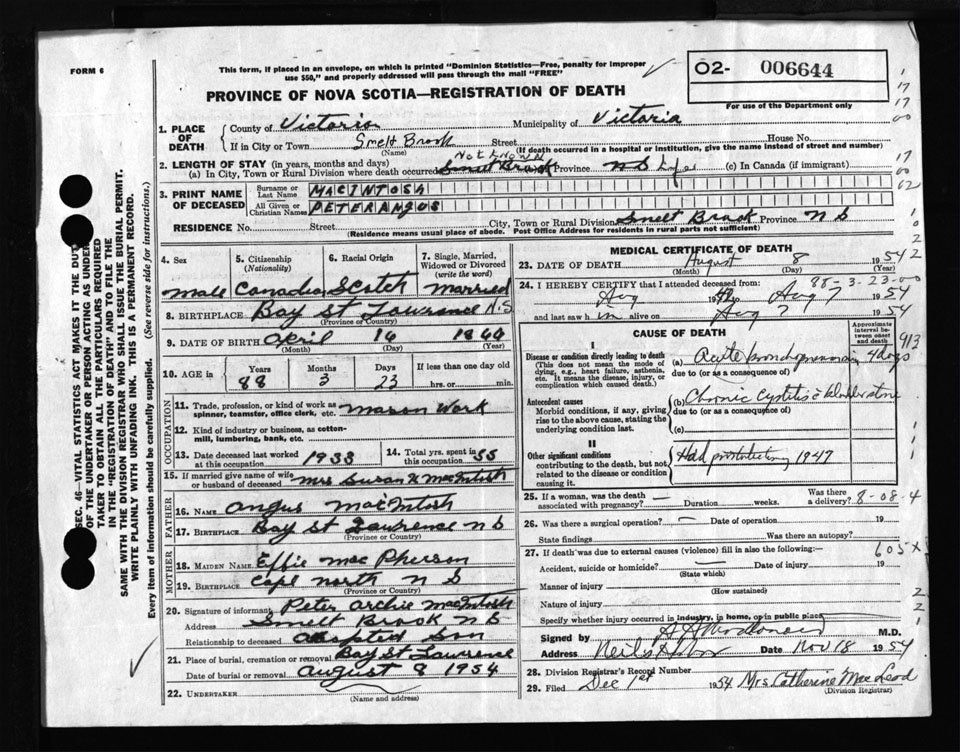 FORM 6
This form, if placed in an envelope, on which is printed "Dominion Statistics—Free, penalty for improper
use $50," and properly addressed will pass through the mail "FREE"
02- 006644
For use of the Department only
PROVINCE OF NOVA SCOTIA—REGISTRATION OF DEATH
1. PLACE OF DEATH
County of Victoria Municipality of Victoria
If in City or Town Smelt Brook Street House No.
(Name) (If death occurred in a hospital or institution, give the name instead of street and number)
2. LENGTH OF STAY (in years, months and days) Not Known
(a) In City, Town or Rural Division where death occurred Smelt Brook Province N S Life (c) In Canada (if immigrant)
3. PRINT NAME OF DECEASED
Surname or Last Name MACINTOSH
All Given or Christian Names PETER ANGUS
RESIDENCE No. Street City, Town or Rural Division Smelt Brook Province N S
(Residence means usual place of abode. Post Office Address for residents in rural parts not sufficient)
4. Sex
Male
5. Citizenship (Nationality)
Canadian
6. Racial Origin
Scotch
7. Single, Married, Widowed or Divorced (write the word)
Married
8. BIRTHPLACE Bay St Lawrence N.S
(Province or Country)
9. DATE OF BIRTH April 16 1866
(Month) (Day) (Year)
10. AGE in Years Months Days If less than one day
88 3 23 hrs. or min.
OCCUPATION
11. Trade, profession, or kind of work as spinner, teamster, office clerk, etc. Mason Work
12. Kind of industry or business, as cotton-mill, lumbering, bank, etc.
13. Date deceased last worked at this occupation 1933
14. Total yrs. spent in this occupation 55
15. If married give name of wife or husband of deceased Mrs Susan MacIntosh
FATHER
16. NAME Angus MacIntosh
17. BIRTHPLACE Bay St Lawrence N S
(Province or Country)
MOTHER
18. MAIDEN NAME Effie MacPherson
19. BIRTHPLACE Cape North N S
(Province or Country)
20. Signature of informant Peter Archie MacIntosh
Address Smelt Brook N S
Relationship to deceased Adopted Son
21. Place of burial, cremation or removal Bay St Lawrence
Date of burial or removal August 8 1954
22. UNDERTAKER
(Name and address)
MEDICAL CERTIFICATE OF DEATH
23. DATE OF DEATH August 8 1954
(Month) (Day) (Year)
88-3-23-00
24. I HEREBY CERTIFY that I attended deceased from
Aug 19 to Aug 7 1954
and last saw him alive on Aug 7 1954
CAUSE OF DEATH
Approximate interval between onset and death
I
Disease or condition directly leading to death
(This does not mean the mode of dying, e.g., heart failure, asthenia, etc. It means the disease, injury, or complication which caused death.)
(a) Acute bronchopneumonia 4 days
due to (or as a consequence of)
Antecedent causes
Morbid conditions, if any, giving rise to the above cause, stating the underlying condition last.
(b) Chronic Cystitis c̄ bladder stone
due to (or as a consequence of)
(c)
II
Other significant conditions
contributing to the death, but not related to the disease or condition causing it.
Had prostatectomy 1947
25. If a woman, was the death associated with pregnancy? — Duration weeks. Was there a delivery? 8-08-4
26. Was there a surgical operation? — Date of operation 19
State findings Was there an autopsy?
27. If death was due to external causes (violence) fill in also the following:— 605x
Accident, suicide or homicide? — Date of injury 19
(State which)
Manner of injury
(How sustained)
Nature of injury
Specify whether injury occurred in industry, in home, or in public place
Signed by M.D.
Address Neils Harbor Date Nov 18 1954
28. Division Registrar's Record Number
29. Filed Dec 1st 1954 Mrs. Catherine MacLeod
(Division Registrar)
SEC. 46—VITAL STATISTICS ACT MAKES IT THE DUTY
OF THE UNDERTAKER OR PERSON ACTING AS UNDER-
TAKER TO OBTAIN ALL THE PARTICULARS REQUIRED
IN THE "REGISTRATION OF DEATH" AND TO FILE THE
SAME WITH THE DIVISION REGISTRAR WHO SHALL ISSUE THE BURIAL PERMIT.
WRITE PLAINLY WITH UNFADING INK. THIS IS A PERMANENT RECORD.
Every item of information should be carefully supplied. (See reverse side for instructions.)